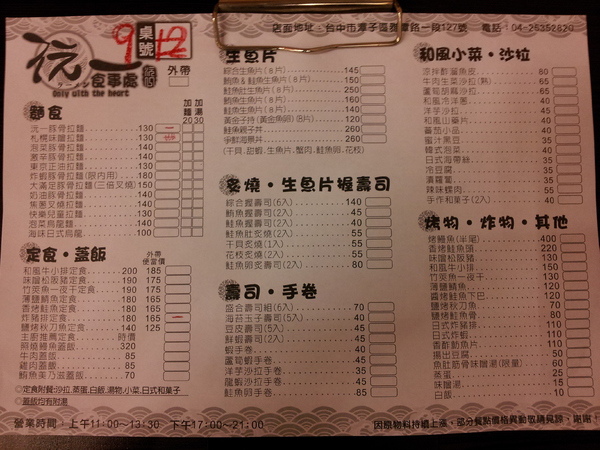 店面地址：台中市潭子區雅潭路一段127號　電話：04-25352820
桌號 12
9
沅一
ラーメン 食事處
Only with the heart
外帶
麵食
加麵20
加湯30
沅一豚骨拉麵 130 一
札幌味噌拉麵 130
泡菜豚骨拉麵 140
激辛豚骨拉麵 140
東京正油拉麵 130
炸蝦豚骨拉麵(限內用) 180
大滿足豚骨拉麵(三倍叉燒) 150
奶油豚骨拉麵 140
焦蔥叉燒拉麵 140
快樂兒童拉麵 100
泡菜烏龍麵 140
海味日式烏龍 100
定食・蓋飯
外帶便當價
和風牛小排定食 200 185
味噌松阪豬定食 190 175
竹筴魚一夜干定食 190 175
薄鹽鯖魚定食 180 165
香烤鮭魚定食 180 165
炸豬排定食 180 165 一
鹽烤秋刀魚定食 140 125
主廚推薦定食 時價
照燒鰻魚蓋飯 320
牛肉蓋飯 85
雞肉蓋飯 85
鮪魚美乃滋蓋飯 70
◎定食附餐:沙拉,蒸蛋,白飯,湯物,小菜,日式和菓子
蓋飯均有附湯
生魚片
綜合生魚片(8片) 145
鮪魚&鮭魚生魚片(8片) 150
鮭魚肚生魚片(8片) 260
鮪魚生魚片(8片) 160
鮭魚生魚片(8片) 140
黃金子持(黃金魚卵)(8片) 120
鮭魚親子丼 260
爭鮮海景丼 260
(干貝,甜蝦,生魚片,蟹肉,鮭魚卵,花枝)
炙燒・生魚片握壽司
綜合握壽司(6入) 140
鮪魚握壽司(2入) 45
鮭魚握壽司(2入) 40
鮭魚肚炙燒(2入) 55
干貝炙燒(1入) 55
花枝炙燒(2入) 55
鮭魚卵炙壽司(2入) 80
壽司・手卷
盛合壽司組(6入) 70
海苔玉子壽司(5入) 40
豆皮壽司(5入) 45
鮮蝦壽司(2入) 45
蝦手卷 40
蘆筍蝦手卷 45
洋芋沙拉手卷 35
龍蝦沙拉手卷 45
鮭魚卵手卷 85
和風小菜・沙拉
涼拌酢鯊魚皮 80
牛肉生菜沙拉(熟) 65
蘆筍胡麻沙拉 50
和風冷洋蔥 40
和風山藥片 40
蕃茄小品 40
蜜汁黑豆 35
韓式泡菜 40
日式海帶絲 35
冷豆腐 35
漬蘿蔔 35
辣味螺肉 55
手作和菓子(2入) 40
烤物・炸物・其他
烤鰻魚(半尾) 400
香烤鮭魚頭 220
味噌松阪豬 130
和風牛小排 150
竹筴魚一夜干 130
薄鹽鯖魚 120
醬烤鮭魚下巴 120
鹽烤秋刀魚 70
鹽烤鮭魚骨 80
日式炸豬排 110
日式炸蝦 110
香酢魴魚片 110
揚出豆腐 50
魚肚筋骨味噌湯(限量) 60
蒸蛋 25
味噌湯 15
白飯 10
營業時間：上午11:00~13:30　下午17:00~21:00
因原物料持續上漲，部分餐點價格異動敬請見諒，謝謝！